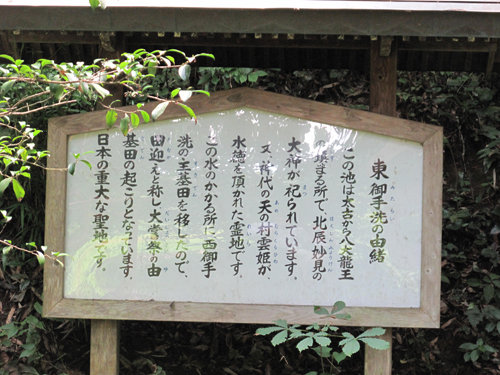 東御手洗の由緒
この池は太古から八大龍王
の鎮まる所で、北辰妙見の
大神が祀られています。
又、神代の天の村雲姫が
水徳を頂かれた霊地です。
この水のかかる所に西御手
洗の王基田を移したので、
田迎えと称し大嘗祭の由
基田の起こりとなています。
日本の重大な聖地です。